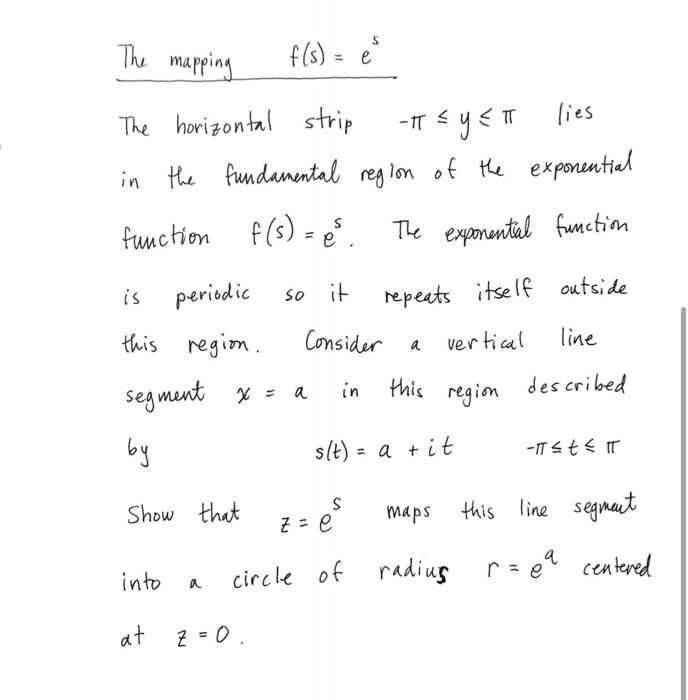 The mapping f(s) = e^s
The horizontal strip -π ≤ y ≤ π lies
in the fundamental region of the exponential
function f(s) = e^s. The exponential function
is periodic so it repeats itself outside
this region. Consider a vertical line
segment x = a in this region described
by s(t) = a + it -π ≤ t ≤ π
Show that z = e^s maps this line segment
into a circle of radius r = e^a centered
at z = 0.